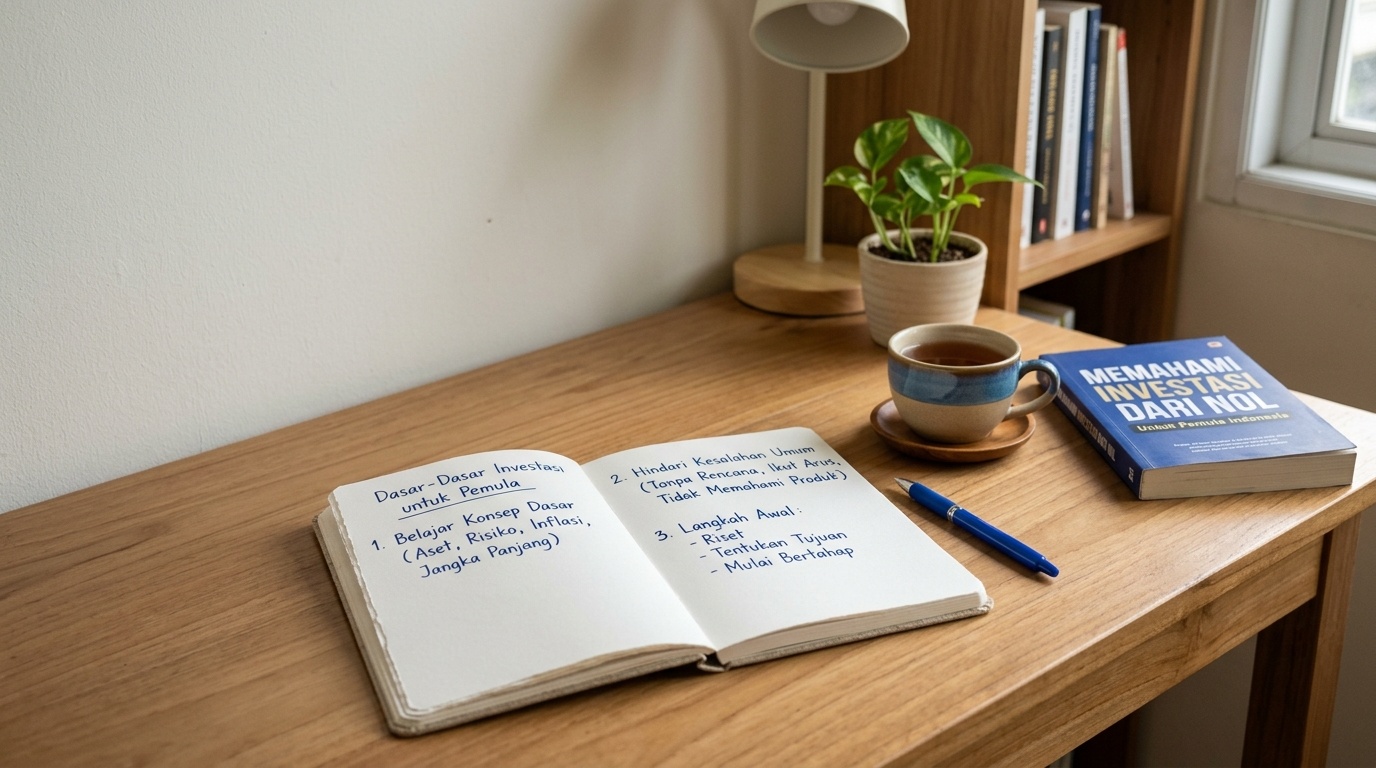 Dasar-Dasar Investasi
untuk Pemula
1. Belajar Konsep Dasar
(Aset, Risiko, Inflasi,
Jangka Panjang)
2. Hindari Kesalahan Umum
(Tanpa Rencana, Ikut Arus,
Tidak Memahami Produk)
3. Langkah Awal:
- Riset
- Tentukan Tujuan
- Mulai Bertahap
MEMAHAMI
INVESTASI
DARI NOL
Untuk Pemula Indonesia